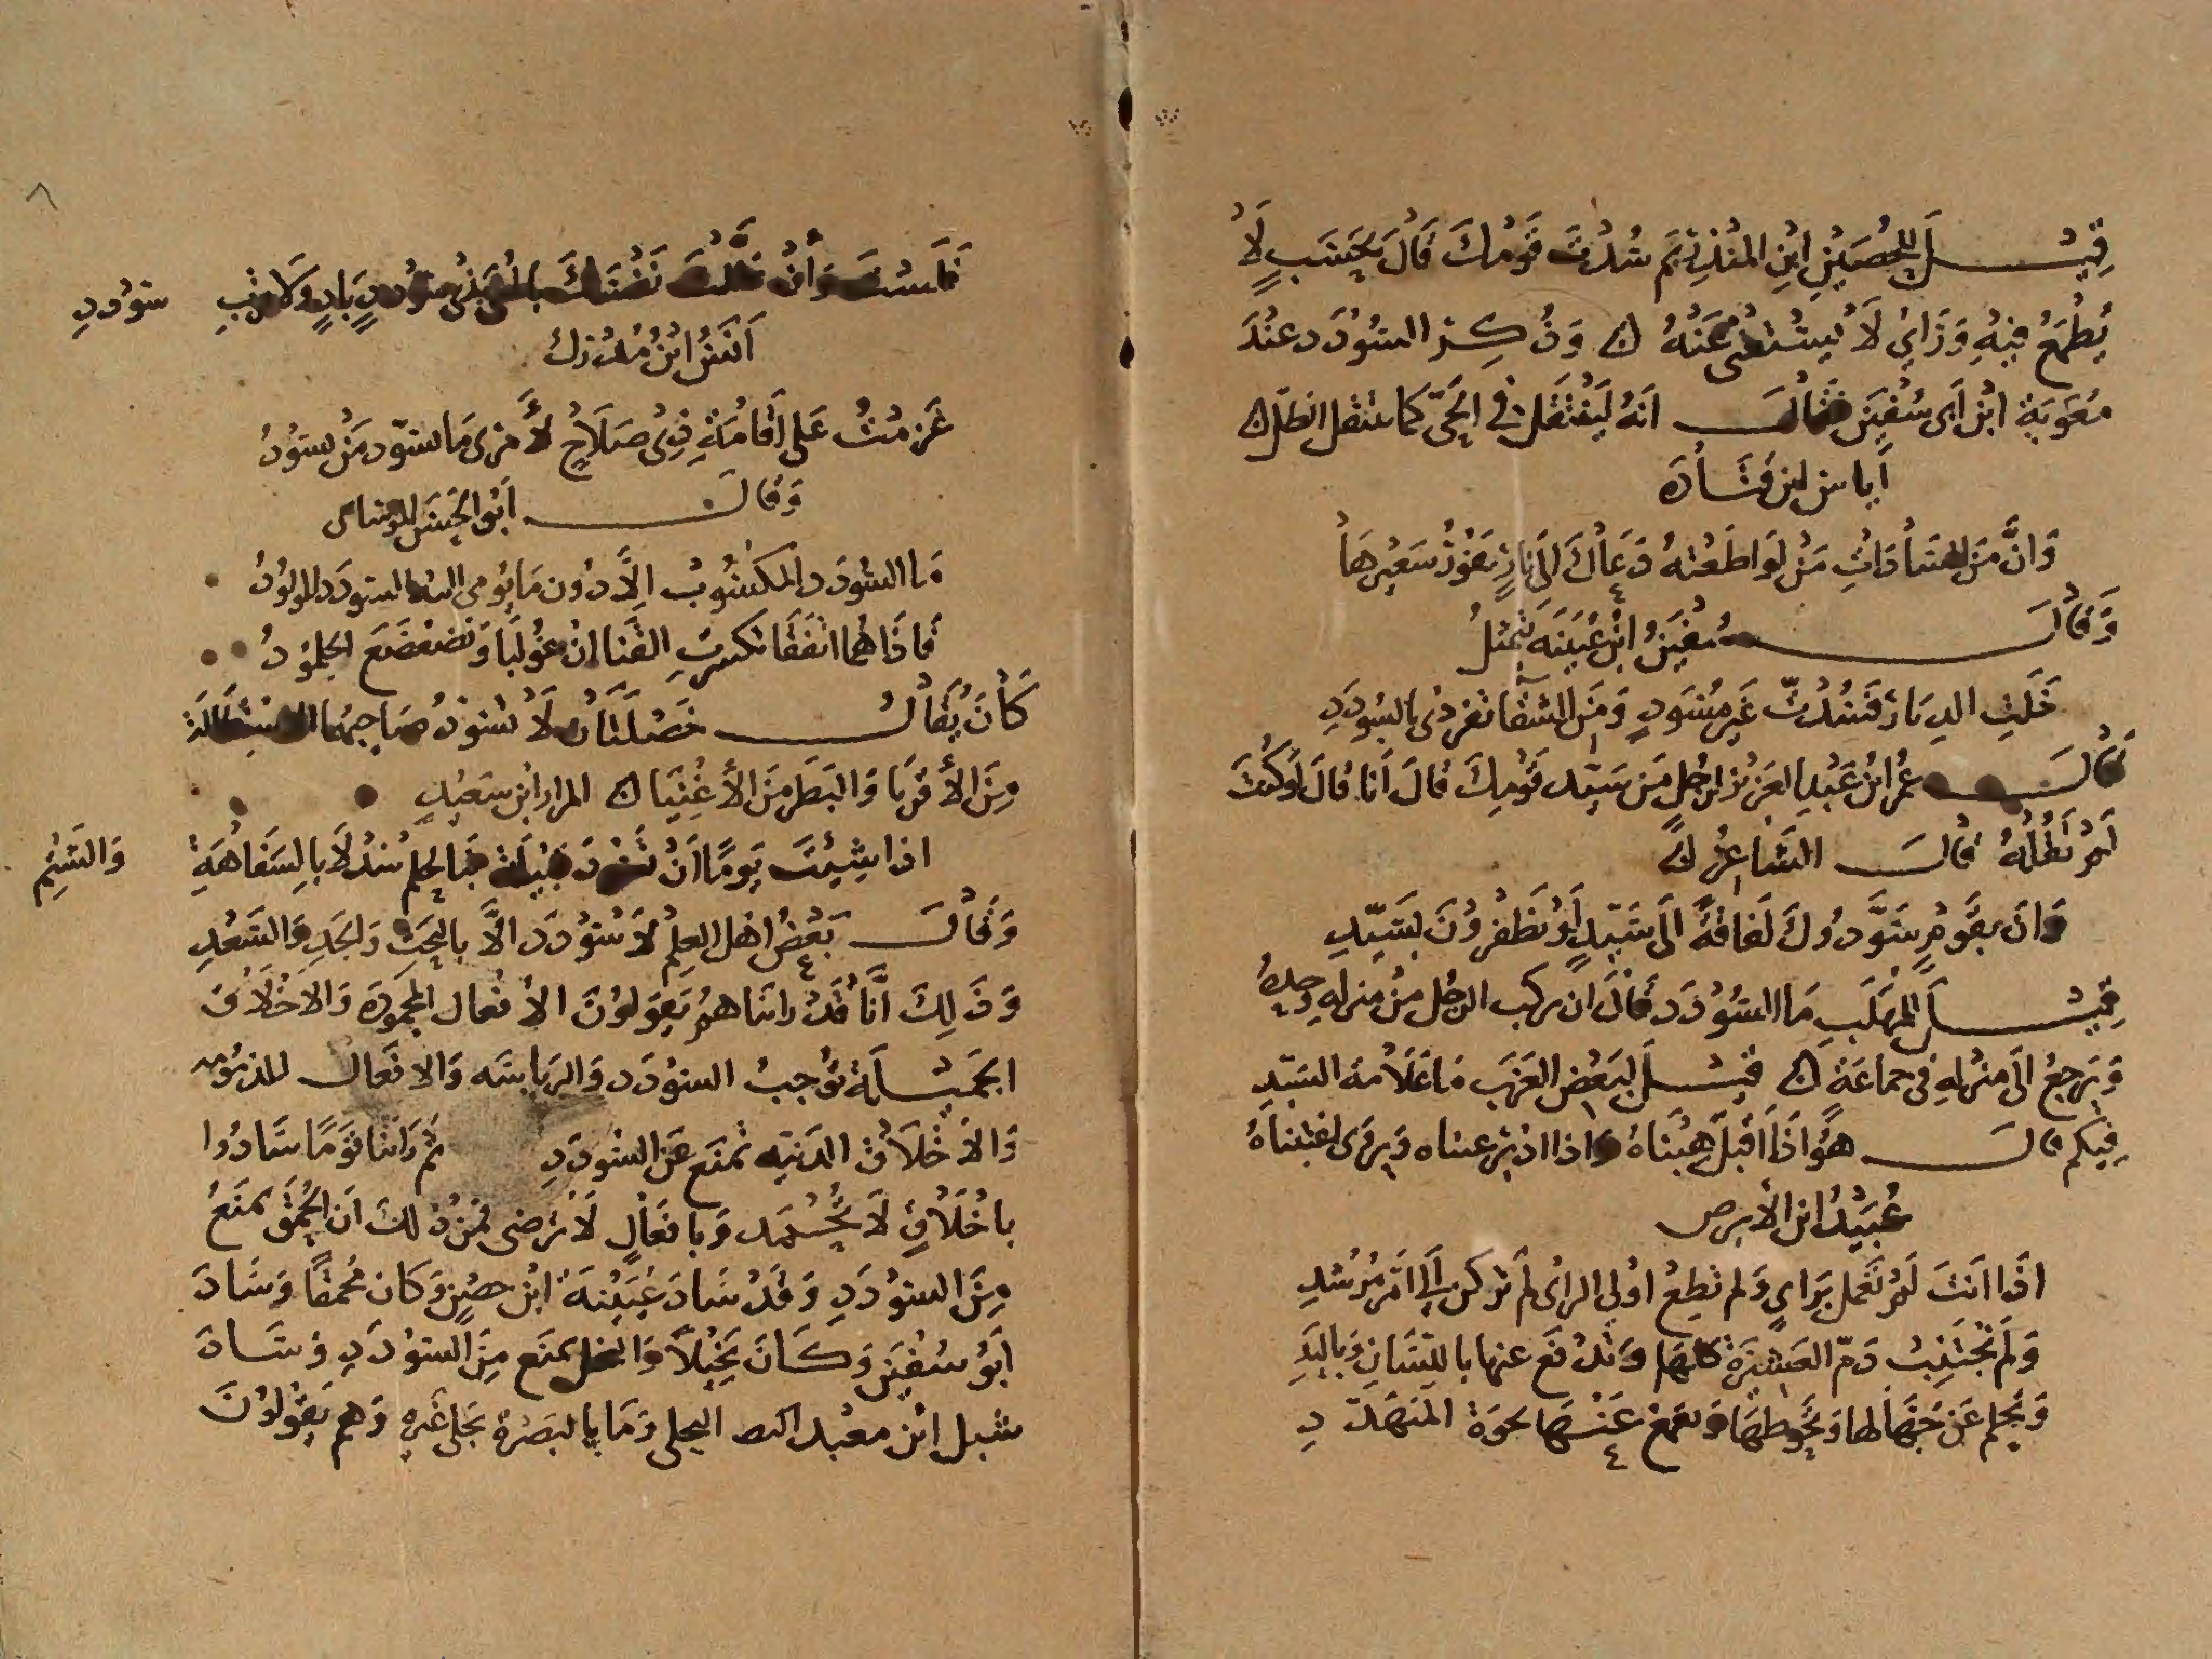 قِيْـــــل لِلحُصَيْنِ ابْنِ المُنْذِرِ بِمَ سُدْتَ قَوْمكَ قَالَ بِحَسَبٍ لَا
يُطْمَعُ فِيْهِ وَرَايٍ لَا يُسْتَغْنى عَنْهُ وَذُكِرَ السُوْدَد عِنْدَ
مُعَوِيَةَ ابْن اَبى سُفْيَن فقَالَ اَنهُ لَيَنْتَقلُ في الحَىّ كما ينتقل الظلّ
أياس ابن قَتَادَة
وَانَّ مَن السَادَاتِ مَنْ لَو اطَعْتهُ دَعَاكَ اِلَى نارٍ يَفُوْرُ سَعِيْرهَا
وَقَالَ سُفْيَنُ ابْن عُيَيْنَه يَتمثلُ
خَلَتِ الدِيَارُ فَسُدْتُ غَير مُسَودٍ وَمِنَ الشقَا تفردِى بالسودَدِ
قَالَ عُمرُ ابنُ عَبْدِ العَزِيْز لرَجُلٍ مَن سَيّد قَوْمِكَ قَالَ أنا قَالَ لَو كُنْتَ
لَمْ تَقُلْهُ قَالَ الشَاعِرُ
وَانَ بِقَوْمٍ سَوَّدُوكَ لَفَاقَةً اَلَى سَيِّدٍ لَو يَظْفرُوْنَ بِسَيّدِ
قِيْـــــلَ للمُهَلَّبِ مَا السُوْدَد قَالَ ان يركب الرجُل منْ منزله وحدهُ
وَيَرجعُ الَى منزلهِ فى جماعَة قيْـــل لبَعْض العَرَب مَا عَلَامة السَيّدِ
فِيْكم قالَ هوَ اذَا اَقْبلَ هِبْنَاهُ وَاذا ادْبرَ عبناه وَيرى اغتبناهُ
عُبَيْدُ ابن الأبرص
اذَا انْتَ لَمْ تَعْمل بِرَايٍ وَلم تطِعْ اولي الراى لم تركن الى امْر مُرْشدِ
وَلَم تَجْتَنِبْ دَمّ العَشيْرَة كلّهَا وَتَدْفَع عنهَا باللّسَانِ وَباليَدِ
وَتَحلم عَن جُهّالها وَتحُوطهَا وَتقمع عَنْهَا نخوَة المُتَهَدّدِ
فَلَسْتَ وَأنْ عَلّلْتَ نَفْسَكَ بالمُنَى بِذى سُودَدٍ بَادٍ وَلَا قربِ سُودَدِ
اَنَسُ ابْنُ مُدْرك
عَزمْتُ عَلَى اَقَامَةِ ذِى صَلَاحٍ لأَمْرٍ مَا يسوّد مَنْ يسَوْدُ
وَقَالَ اَبُو الحَسَن
مَا السُودَد المكْسُوبُ الَّا دُون مَا يُومى اليه السودَد المولُوْدُ
فَاذَا هُما اتفَقَا تكسرَتِ القَنَا انْ غُولبَا وَتضَعْضَعَ الجلمُوْدُ
كَانَ يُقَالُ خَصْلَتَانِ لَا يَسُوْدُ صَاحِبُهَا الاسْتِطَالَة
مِنَ الأقرِبَا وَالبَطَر مِنَ الأغْنِيَا المرار ابْن سَعِيْدٍ
اذا شِئْتَ يَومًا اَنْ تَسُوْدَ قَبِيْلَة فَبِالحلم سُدْ لَا بالسَفَاهَةِ وَالشتْمِ
وَقَالَ بَعْضُ اهْل العِلمْ لَا سُؤدَدَ الَّا بالبَخْت وَالجَدِ وَالسَعْدِ
وَذَلِكَ اَنَّا قَدْ راَيْنَاهمُ يَقولوْنَ الأفعَال المحمودَة وَالاخْلَاقَ
الجَميْـــلَة تُوْجبُ السودَد وَالرياسَه وَالافعَال المذمُومه
وَالأخْلَاقَ الدَنيّه تمنَع عَن السُودَدِ ثم رَايْنَا قَومًا سَادُوا
باخْلَاقٍ لَا تُحْـمَد وَبافعَالٍ لَا تُرضى فمنْ ذلكَ اَن الحُمْقَ يَمنَعُ
مِنَ السوْدَدِ وَقَدْ سَادَ عُيَيْنَة ابْن حصْنٍ وَكَان مُحمقًا وَسَادَ
اَبُو سُفيَن وَكَانَ بَخِيْلاً وَالبخل يَمنَع مِنَ السوْدَدِ وَسَــادَ
شبل ابْن معْبد البجلى وَمَا بالبَصْرةِ بجلى غَيرهِ وَهم يَقُولوْنَ